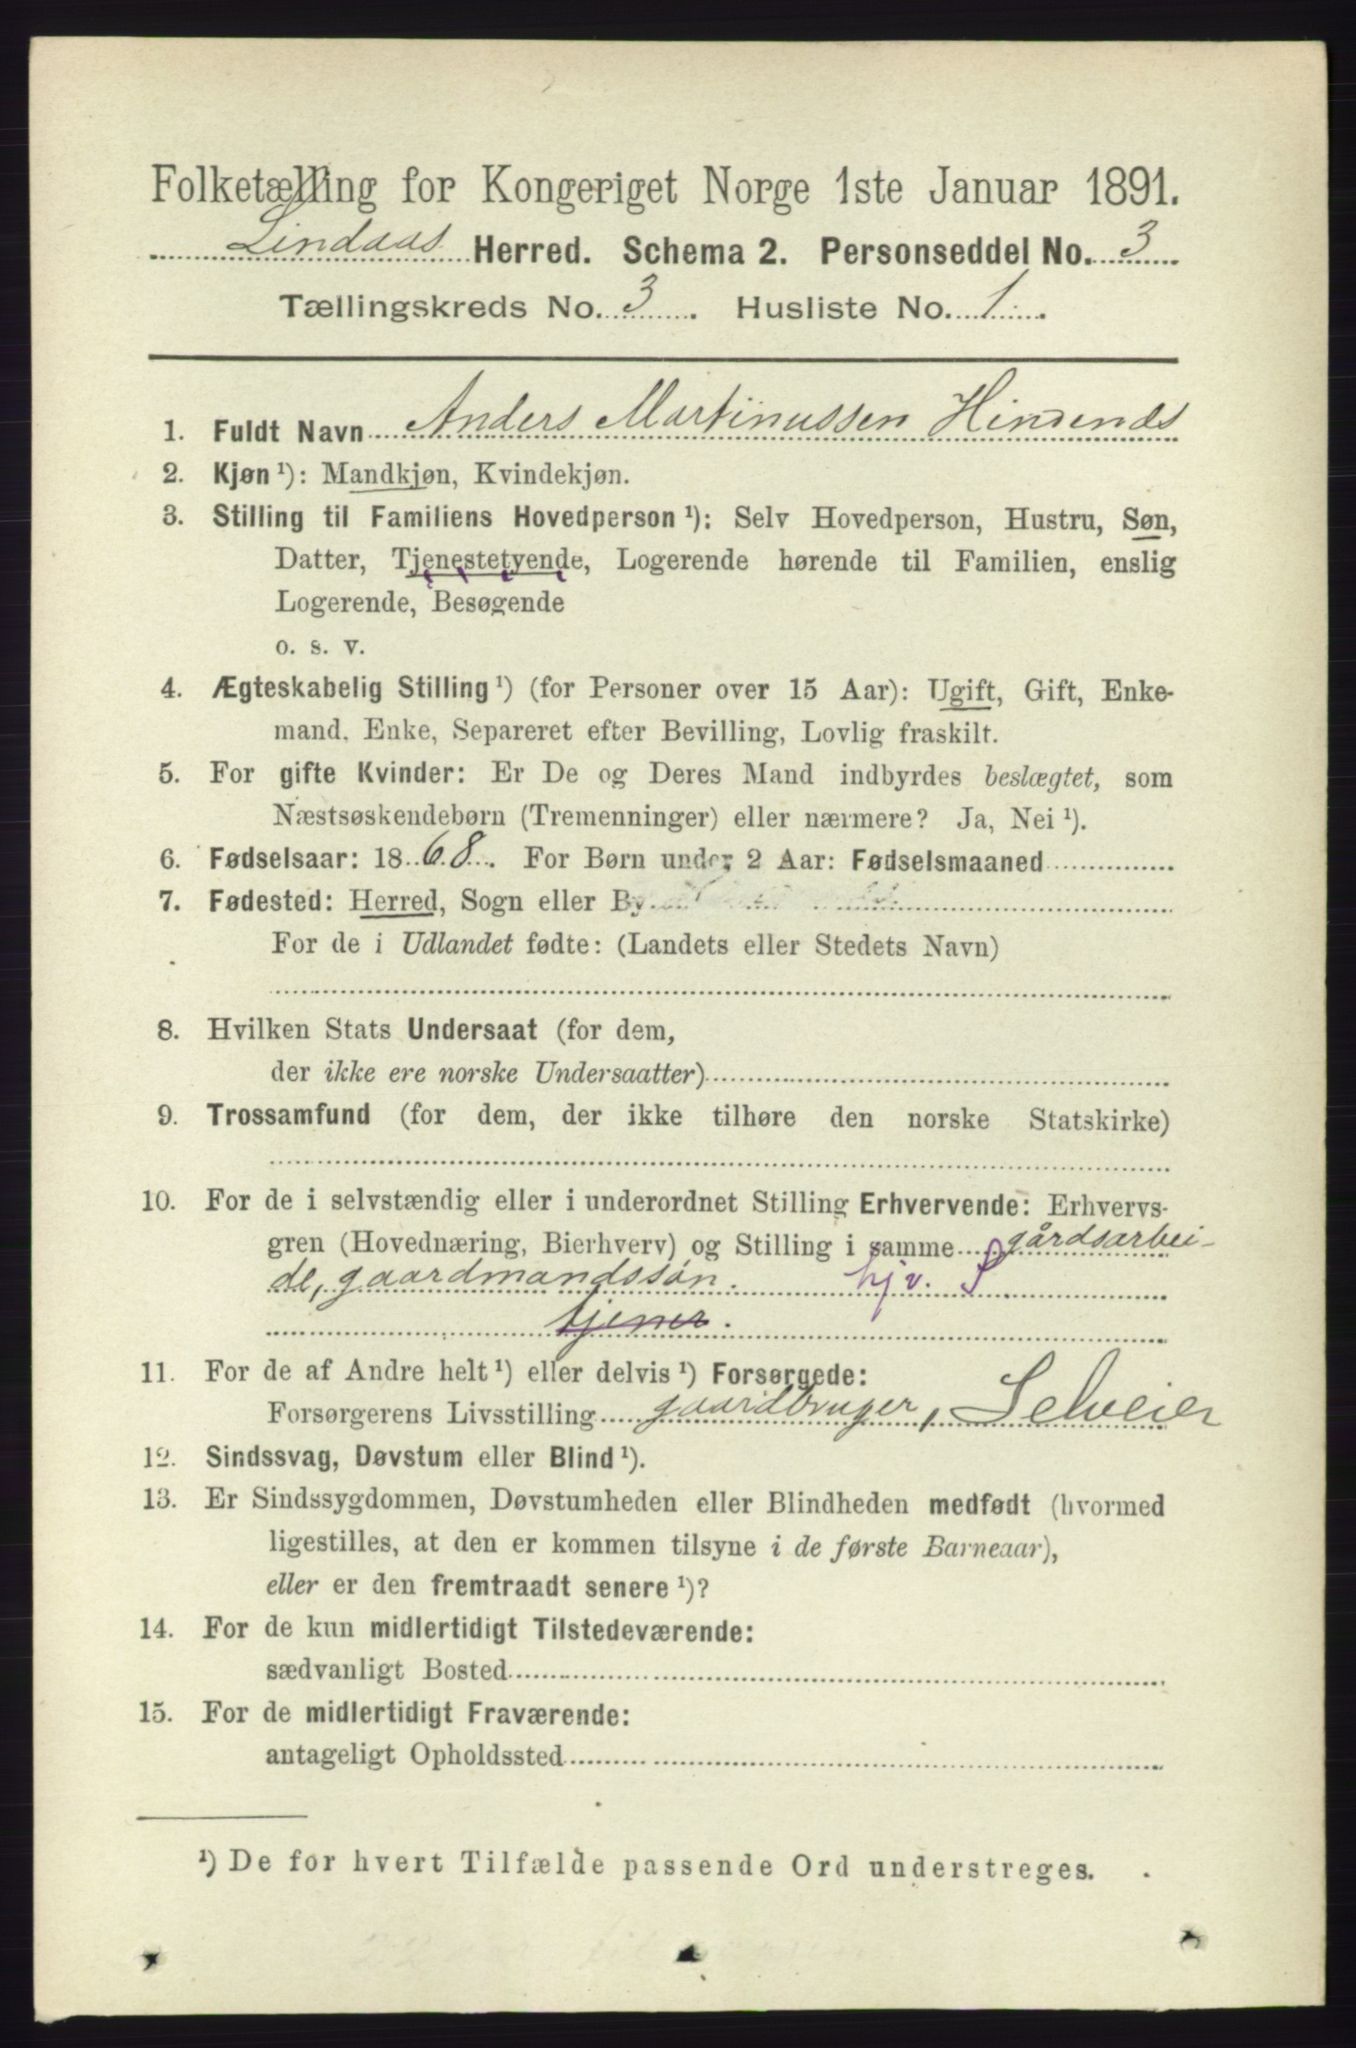 Folketælling for Kongeriget Norge 1ste Januar 1891.
Lindaas Herred. Schema 2. Personseddel No. 3
Tællingskreds No. 3. Husliste No. 1.
1. Fuldt Navn Anders Martinussen Hindenæs
2. Kjøn ¹): Mandkjøn, Kvindekjøn.
3. Stilling til Familiens Hovedperson ¹): Selv Hovedperson, Hustru, Søn,
Datter, Tjenestetyende, Logerende hørende til Familien, enslig
Logerende, Besøgende
o. s. v.
4. Ægteskabelig Stilling ¹) (for Personer over 15 Aar): Ugift, Gift, Enke-
mand, Enke, Separeret efter Bevilling, Lovlig fraskilt.
5. For gifte Kvinder: Er De og Deres Mand indbyrdes beslægtet, som
Næstsøskendebørn (Tremenninger) eller nærmere? Ja, Nei ¹).
6. Fødselsaar: 1868. For Børn under 2 Aar: Fødselsmaaned
7. Fødested: Herred, Sogn eller By
For de i Udlandet fødte: (Landets eller Stedets Navn)
8. Hvilken Stats Undersaat (for dem,
der ikke ere norske Undersaatter)
9. Trossamfund (for dem, der ikke tilhøre den norske Statskirke)
10. For de i selvstændig eller i underordnet Stilling Erhvervende: Erhvervs-
gren (Hovednæring, Bierhverv) og Stilling i samme gårdsarbei-
de, gaardmandssøn. hjv. S
tjener.
11. For de af Andre helt ¹) eller delvis ¹) Forsørgede:
Forsørgerens Livsstilling gaardbruger, Selveier
12. Sindssvag, Døvstum eller Blind ¹).
13. Er Sindssygdommen, Døvstumheden eller Blindheden medfødt (hvormed
ligestilles, at den er kommen tilsyne i de første Barneaar),
eller er den fremtraadt senere ¹)?
14. For de kun midlertidigt Tilstedeværende:
sædvanligt Bosted
15. For de midlertidigt Fraværende:
antageligt Opholdssted
¹) De for hvert Tilfælde passende Ord understreges.